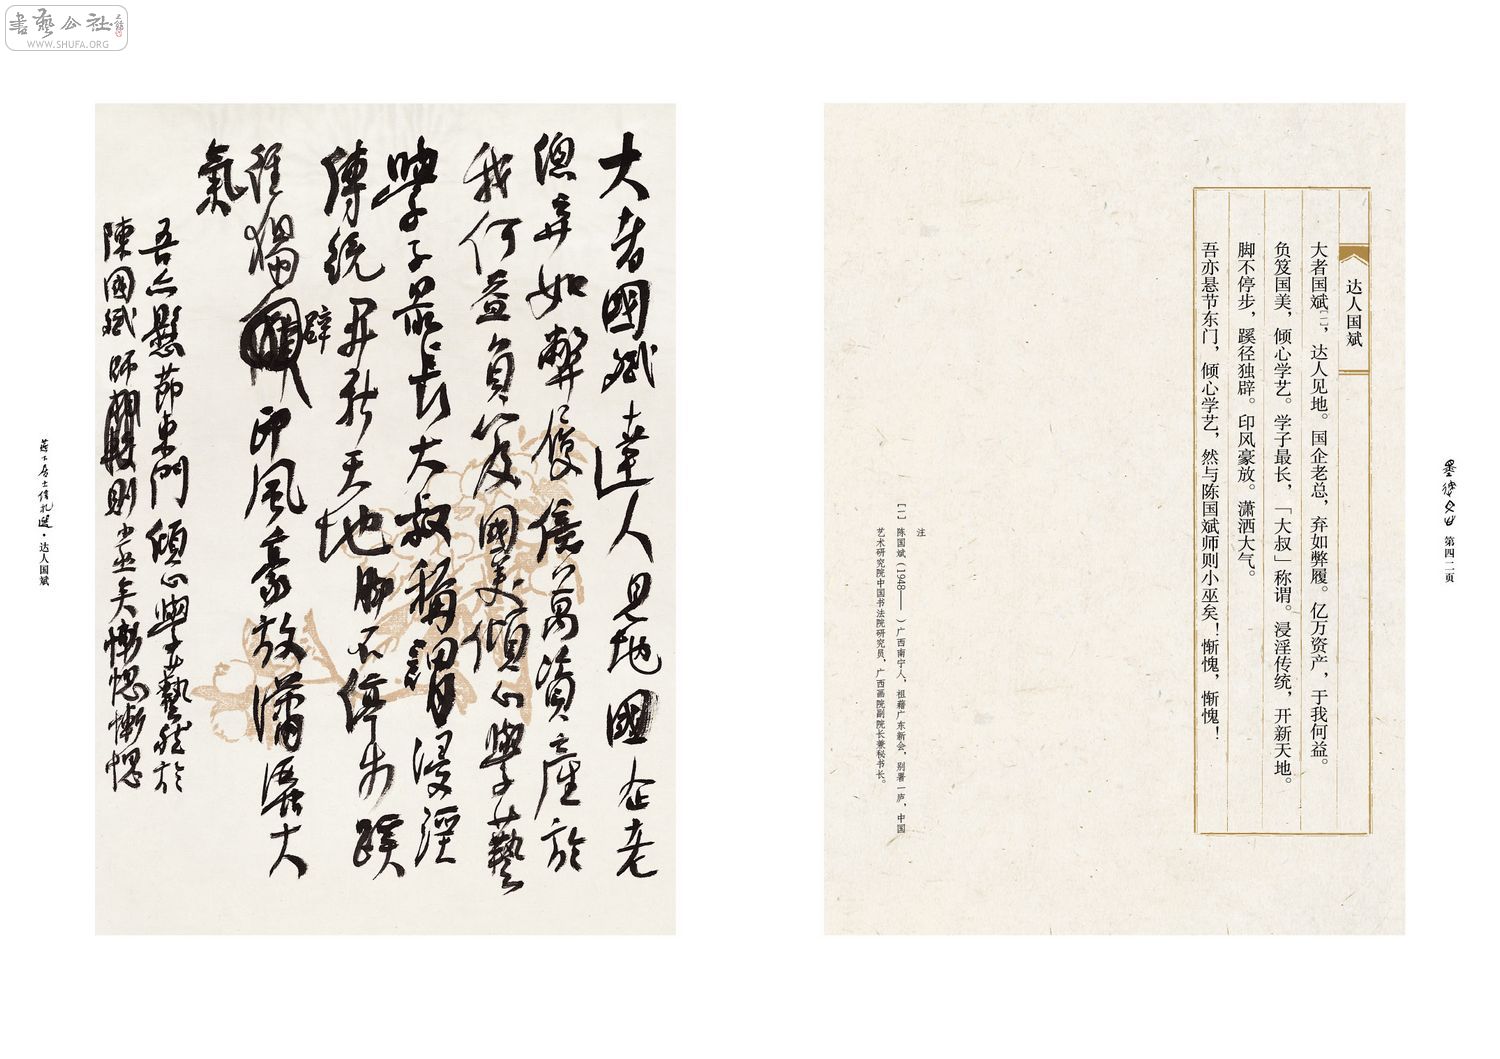 書藝公社
WWW.SHUFA.ORG
大者國斌達人見地國企老
總弃如弊履億萬資產於
我何益負笈國美傾心學藝
學子最長大叔稱謂浸淫
傳統開新天地脚不停步蹊
徑獨闢印風豪放瀟灑大
氣
吾亦懸節東門傾心學藝然於
陳國斌師則小巫矣慚愧慚愧
达人国斌
大者国斌[一]，达人见地。国企老总，弃如弊履。亿万资产，于我何益。
负笈国美，倾心学艺。学子最长，「大叔」称谓。浸淫传统，开新天地。
脚不停步，蹊径独辟。印风豪放。潇洒大气。
吾亦悬节东门，倾心学艺，然与陈国斌师则小巫矣！惭愧，惭愧！
注
[一] 陈国斌（1948—— ）广西南宁人，祖籍广东新会，别署一庐，中国
艺术研究院中国书法院研究员，广西画院副院长兼秘书长。
第四二页
·达人国斌